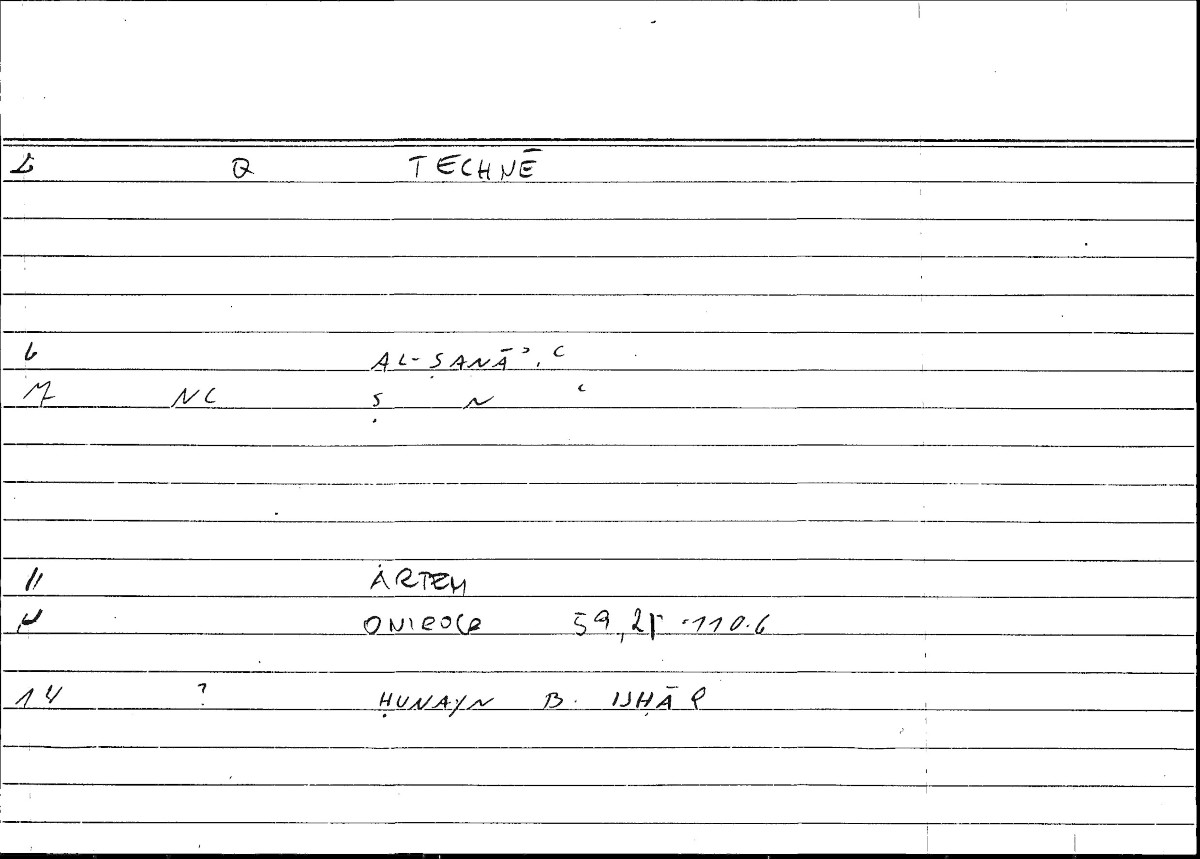 Q TECHNĒ
6 AL-ṢANĀʾIʿ
NC Ṣ N ʿ
11 ARTEM
ONIROCR 59,21-110.6
14 ? ḤUNAYN B. ISḤĀQ